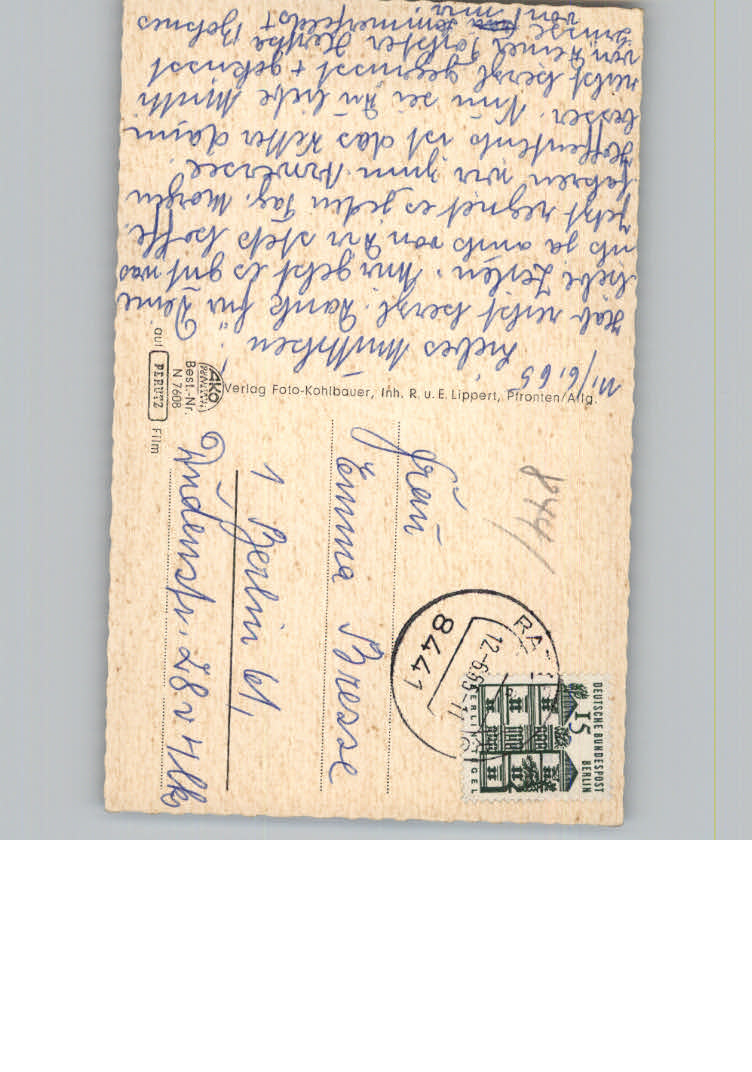 11/6.65
Liebes Muttchen!
Hab recht herzl. Dank für Deine
liebe Zeilen. Mir geht es gut was
ich ja auch von Dir stets hoffe.
Jetzt regnet es jeden Tag. Morgen
fahren wir zum
Hoffentlich ist das Wetter dann
besser. Nun sei Du liebe Mutti
recht herzl gegrüsst + geküsst
von Deiner Tochter Hertha
Grüsse Sommerfeldst
von mir.
Verlag Foto-Kohlbauer, Inh. R. u. E. Lippert, Pfronten/Allg.
AKO
Best.-Nr.
N 7608
auf PERUTZ Film
844/
Frau
Emma Bresse
1 Berlin 61,
Dudenstr. 28 v. 4 Tlk
8441
12.-6.65-11
DEUTSCHE BUNDESPOST
BERLIN
15
BERLIN TEGEL